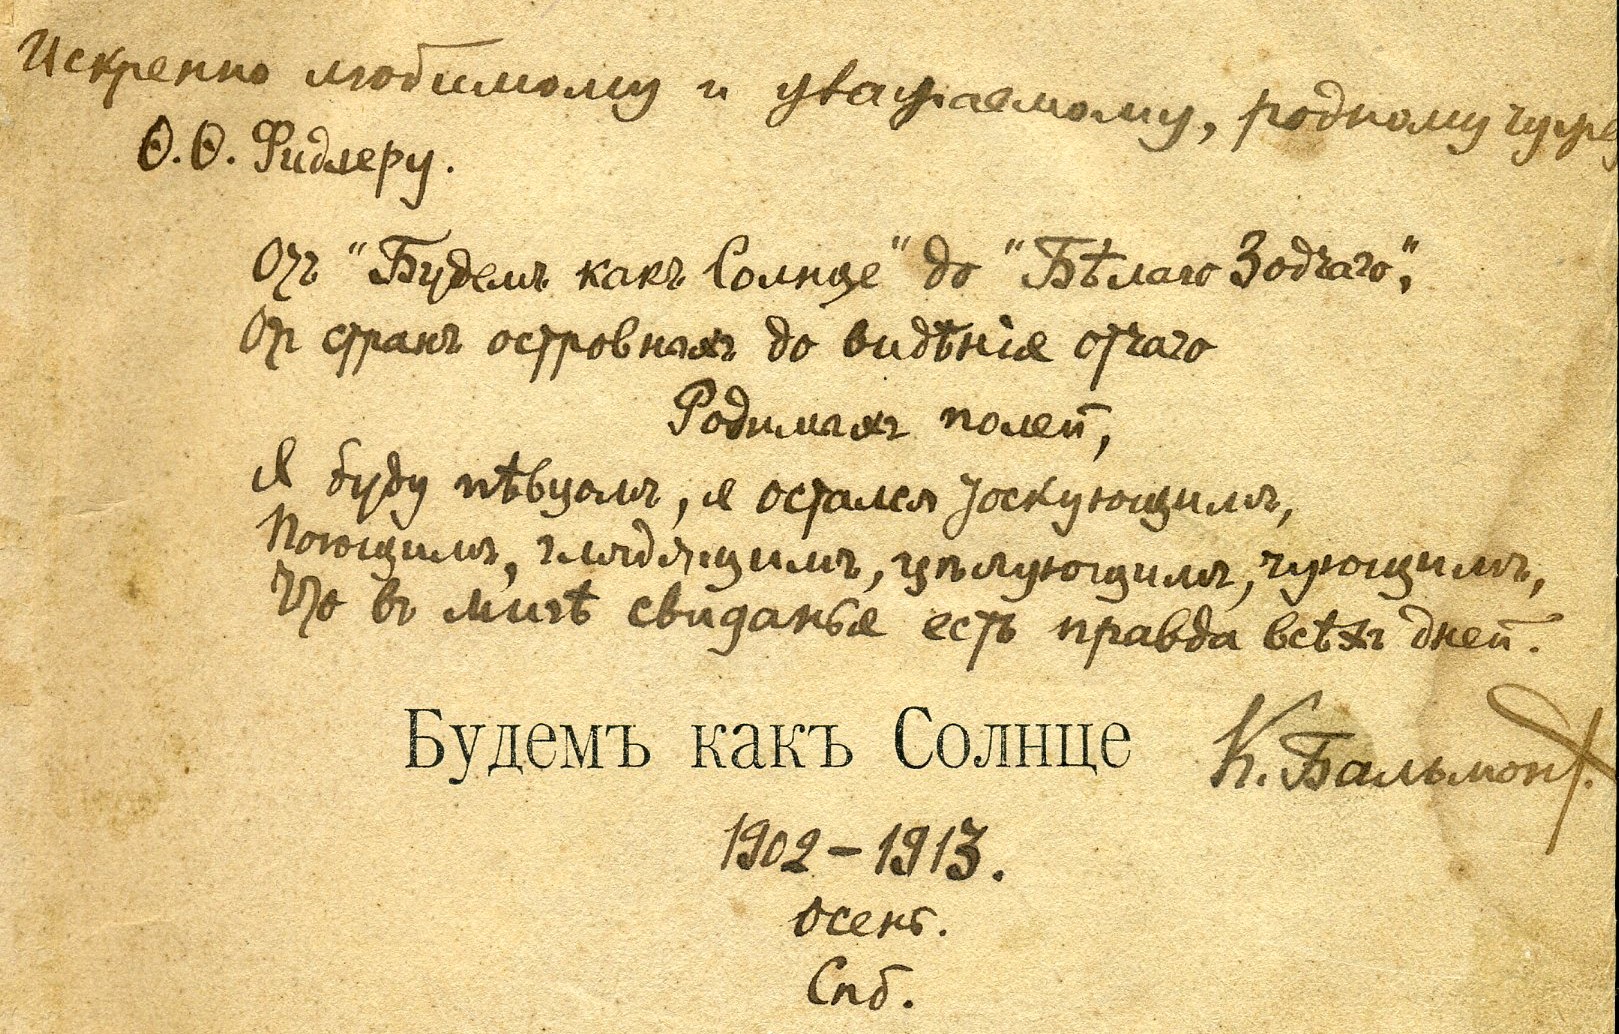 Искренно любимому и уважаемому, родному
Ѳ. Ѳ. Фидлеру.
Отъ "Будемъ какъ Солнце" до "Бѣлаго Зодчаго",
Отъ странъ островныхъ до видѣнія отчаго
Родимыхъ полей,
Я буду пѣвцомъ, я остался тоскующимъ,
Поющимъ, глядящимъ, цѣлующимъ, чующимъ,
Что въ мигѣ свиданья есть правда всѣхъ дней.
Будемъ какъ Солнце
К. Бальмонт.
1902–1913.
Осень.
Спб.